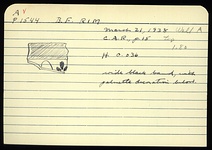 A
P 1544 B.F. RIM
March 21, 1938 Well A
C.A.R. p.15
H. 0.036
wide black band, with
palmette decoration below.